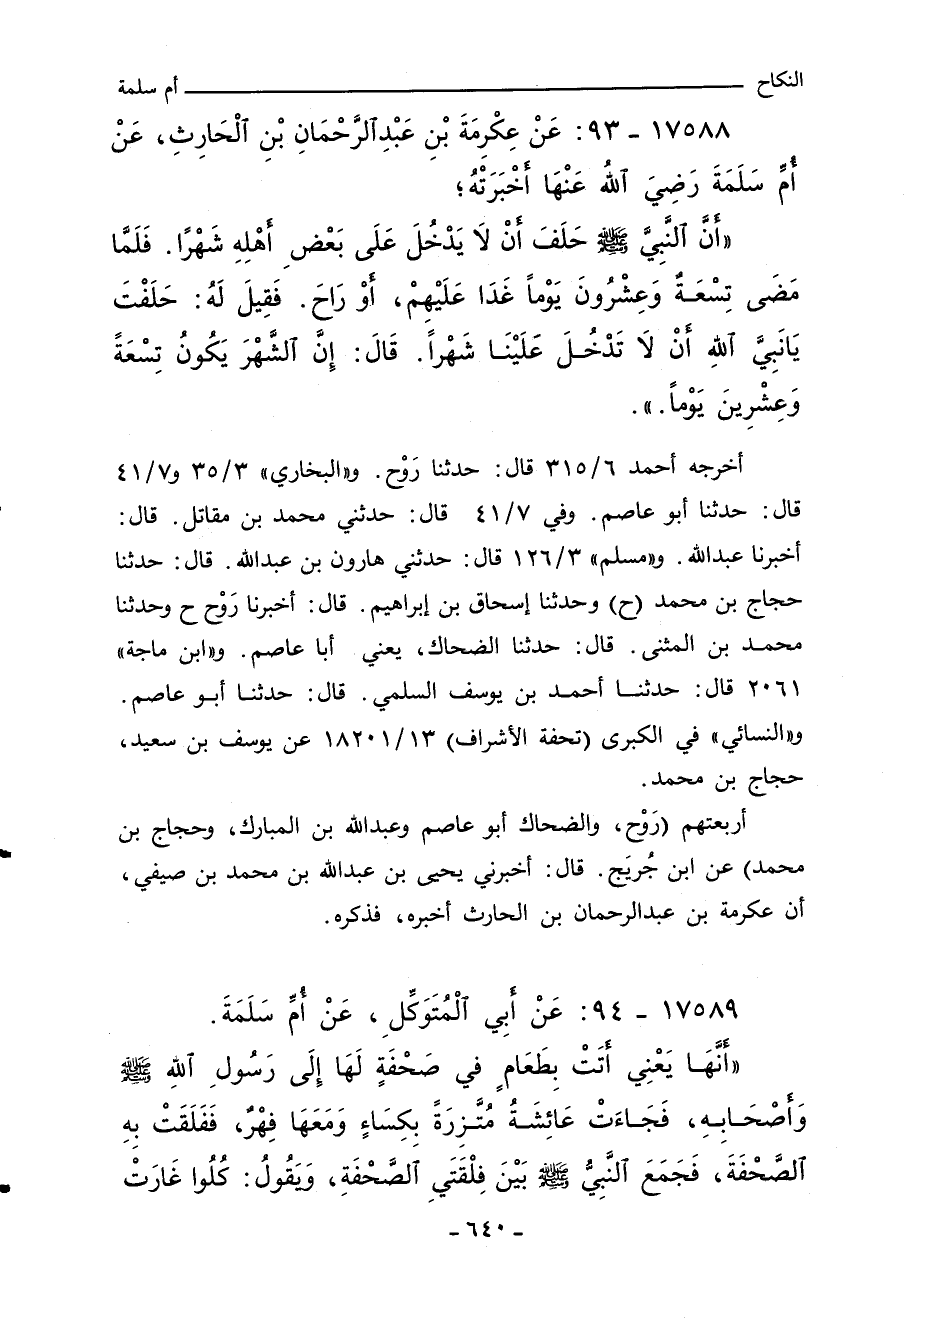 النكاح أم سلمة
١٧٥٨٨ - ٩٣: عَنْ عِكْرِمَةَ بْنِ عَبْدِالرَّحْمَانِ بْنِ الْحَارِثِ، عَنْ
أُمِّ سَلَمَةَ رَضِيَ اللهُ عَنْهَا أَخْبَرَتْهُ؛
«أَنَّ النَّبِيَّ ﷺ حَلَفَ أَنْ لَا يَدْخُلَ عَلَى بَعْضِ أَهْلِهِ شَهْرًا. فَلَمَّا
مَضَى تِسْعَةٌ وَعِشْرُونَ يَوْماً غَدَا عَلَيْهِمْ، أَوْ رَاحَ. فَقِيلَ لَهُ: حَلَفْتَ
يَانَبِيَّ اللهِ أَنْ لَا تَدْخُلَ عَلَيْنَا شَهْراً. قَالَ: إِنَّ الشَّهْرَ يَكُونُ تِسْعَةً
وَعِشْرِينَ يَوْماً.».
أخرجه أحمد ٣١٥/٦ قال: حدثنا رَوْح. و«البخاري» ٣٥/٣ و٤١/٧
قال: حدثنا أبو عاصم. وفي ٤١/٧ قال: حدثني محمد بن مقاتل. قال:
أخبرنا عبدالله. و«مسلم» ١٢٦/٣ قال: حدثني هارون بن عبدالله. قال: حدثنا
حجاج بن محمد (ح) وحدثنا إسحاق بن إبراهيم. قال: أخبرنا رَوْح ح وحدثنا
محمد بن المثنى. قال: حدثنا الضحاك، يعني أبا عاصم. و«ابن ماجة»
٢٠٦١ قال: حدثنا أحمد بن يوسف السلمي. قال: حدثنا أبو عاصم.
و«النسائي» في الكبرى (تحفة الأشراف) ١٨٢٠١/١٣ عن يوسف بن سعيد،
حجاج بن محمد.
أربعتهم (رَوْح، والضحاك أبو عاصم وعبدالله بن المبارك، وحجاج بن
محمد) عن ابن جُرَيَج. قال: أخبرني يحيى بن عبدالله بن محمد بن صيفي،
أن عكرمة بن عبدالرحمان بن الحارث أخبره، فذكره.
١٧٥٨٩ - ٩٤: عَنْ أَبِي الْمُتَوَكِّلِ، عَنْ أُمِّ سَلَمَةَ.
«أَنَّهَا يَعْنِي أَتَتْ بِطَعَامٍ فِي صَحْفَةٍ لَهَا إِلَى رَسُولِ اللهِ ﷺ
وَأَصْحَابِهِ، فَجَاءَتْ عَائِشَةُ مُتَّزِرَةً بِكِسَاءٍ وَمَعَهَا فِهْرٌ، فَفَلَقَتْ بِهِ
الصَّحْفَةَ، فَجَمَعَ النَّبِيُّ ﷺ بَيْنَ فِلْقَتَيِ الصَّحْفَةِ، وَيَقُولُ: كُلُوا غَارَتْ
- ٦٤٠ -